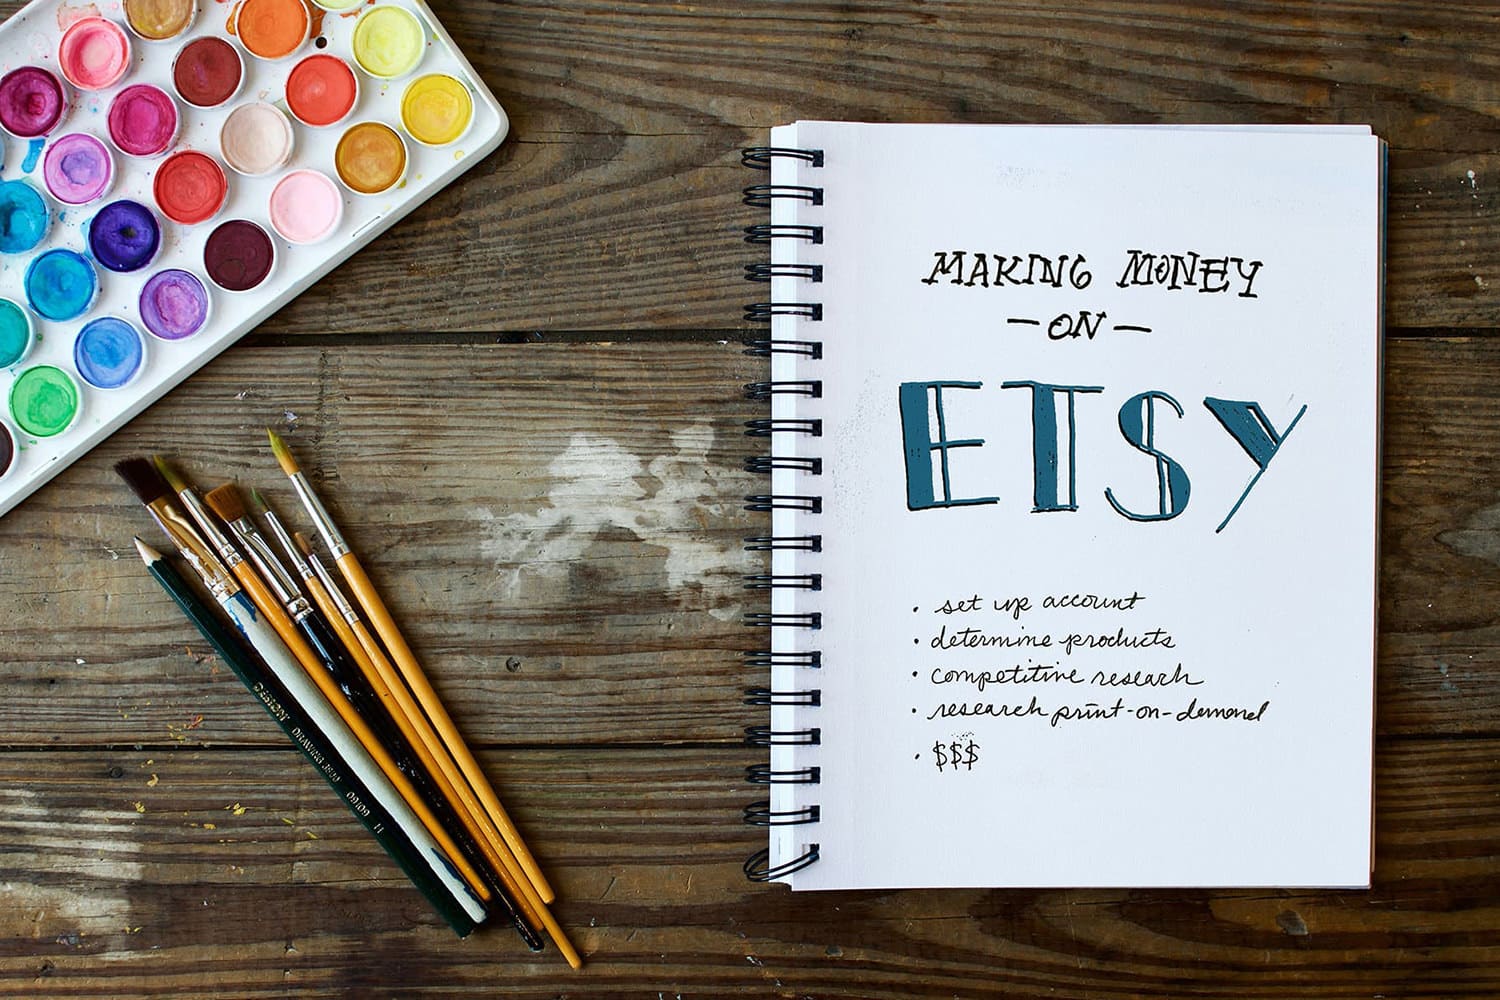 MAKING MONEY
- ON -
ETSY
• set up account
• determine products
• competitive research
• research print-on-demand
• $$$
DESIGN DRAWING 3800